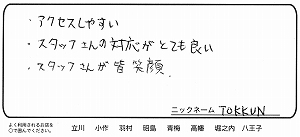 ・アクセスしやすい
・スタッフさんの対応がとても良い
・スタッフさんが皆笑顔
ニックネーム TOKKUN
よく利用されるお店を
○で囲んでください。
立川 小作 羽村 昭島 青梅 高幡 堀之内 八王子